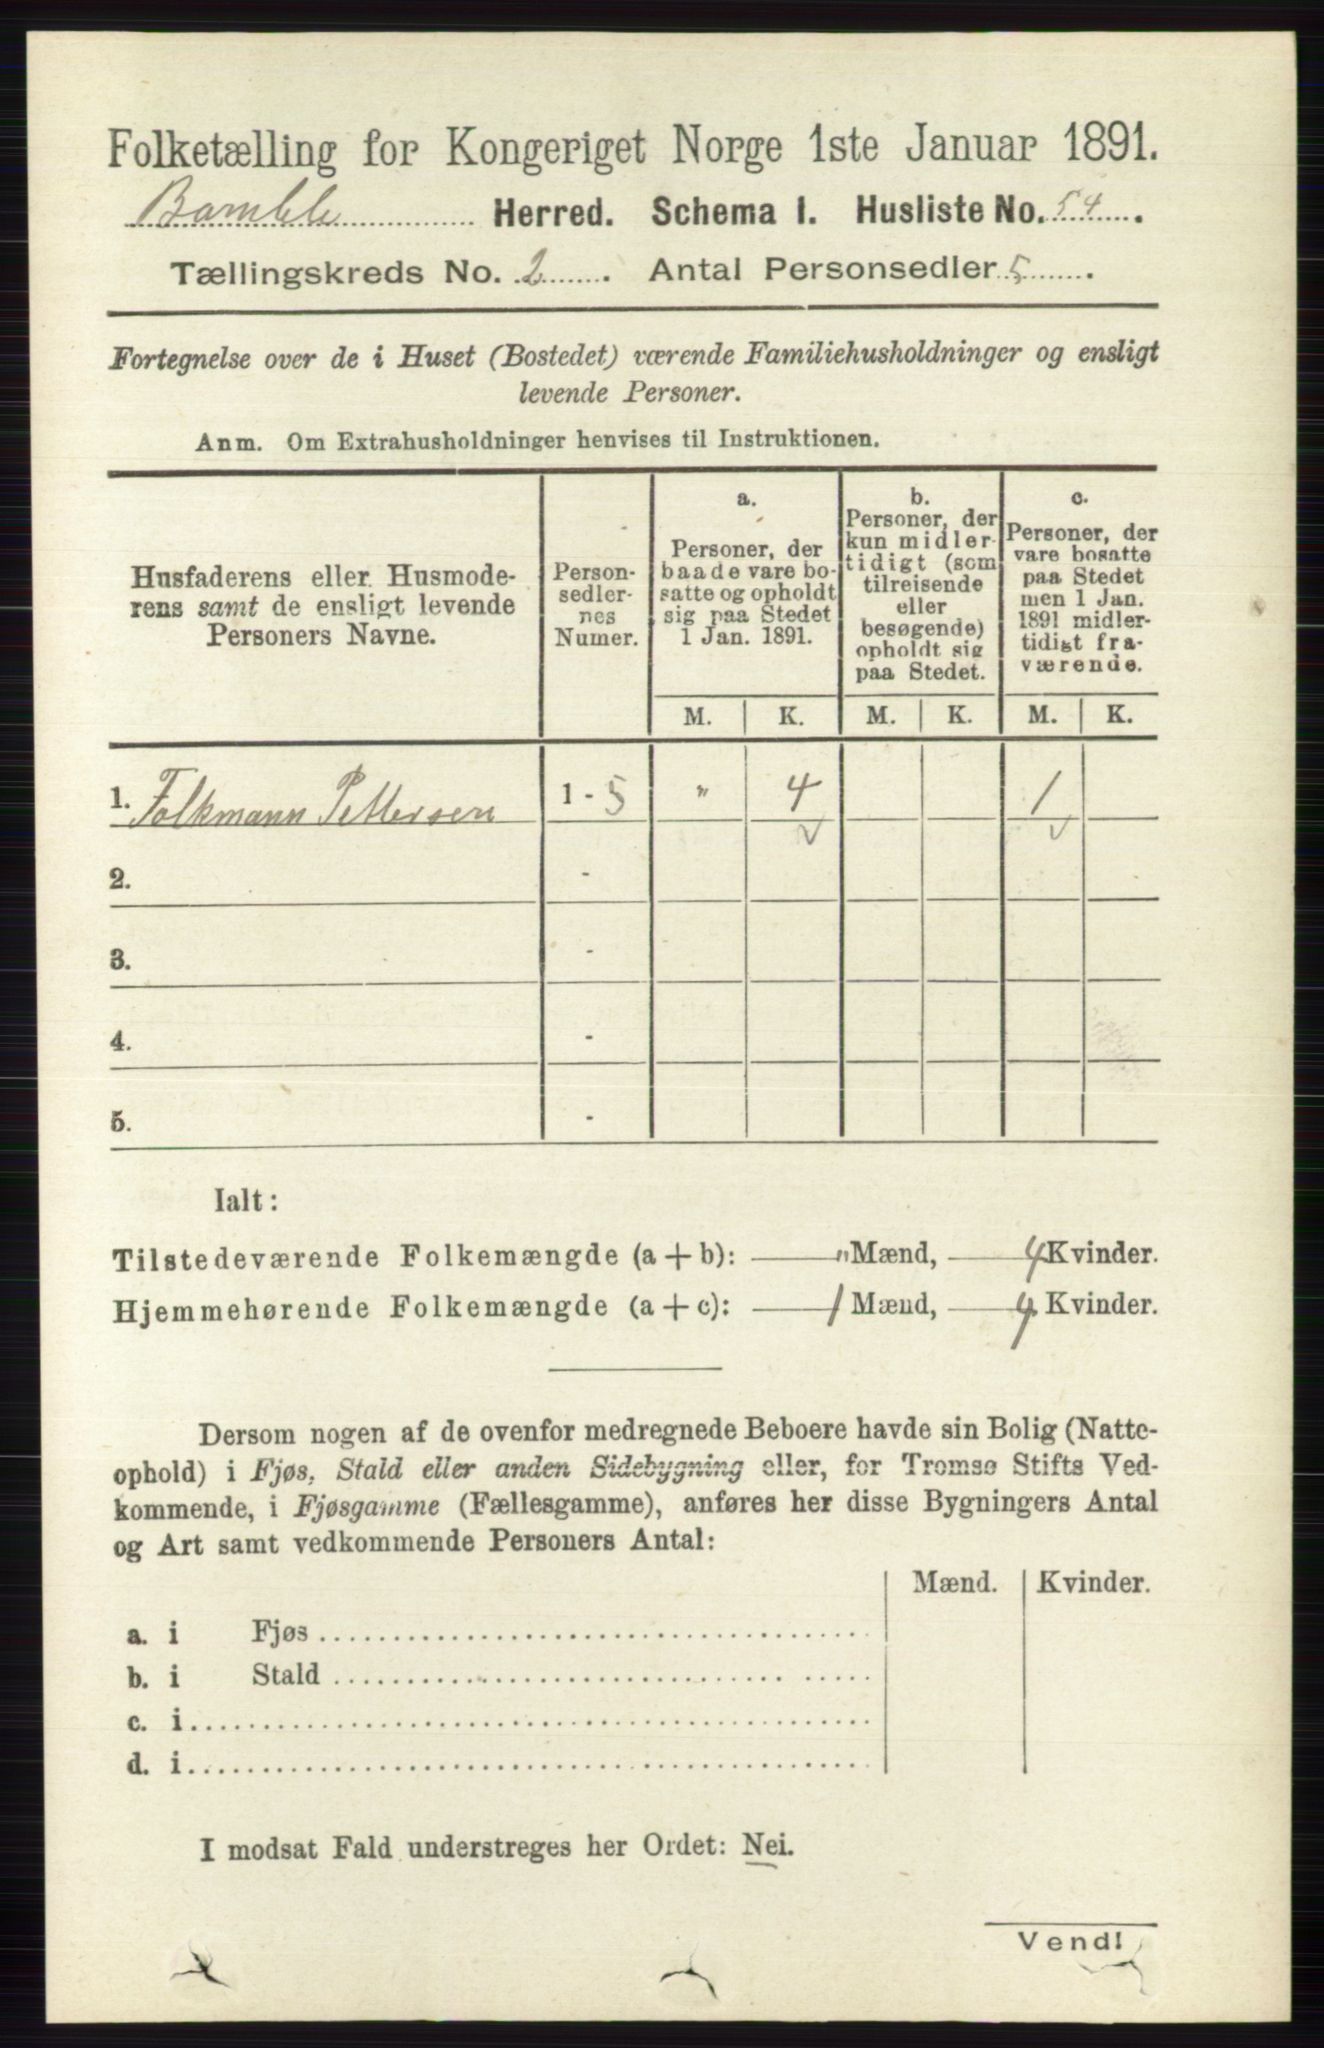 Folketælling for Kongeriget Norge 1ste Januar 1891.
Bamble Herred. Schema I. Husliste No. 54.
Tællingskreds No. 2. Antal Personsedler 5.
Fortegnelse over de i Huset (Bostedet) værende Familiehusholdninger og ensligt
levende Personer.
Anm. Om Extrahusholdninger henvises til Instruktionen.
Husfaderens eller Husmode-
rens samt de ensligt levende
Personers Navne.
Person-
sedler-
nes
Numer.
a.
Personer, der
baade vare bo-
satte og opholdt
sig paa Stedet
1 Jan. 1891.
b.
Personer, der
kun midler-
tidigt (som
tilreisende
eller
besøgende)
opholdt sig
paa Stedet.
c.
Personer, der
vare bosatte
paa Stedet
men 1 Jan.
1891 midler-
tidigt fra-
værende.
M. K. M. K. M. K.
1. Folkmann Pettersen 1 - 5 " 4 1
2. -
3. -
4. -
5. -
Ialt:
Tilstedeværende Folkemængde (a + b): " Mænd, 4 Kvinder.
Hjemmehørende Folkemængde (a + c): 1 Mænd, 4 Kvinder.
Dersom nogen af de ovenfor medregnede Beboere havde sin Bolig (Natte-
ophold) i Fjøs, Stald eller anden Sidebygning eller, for Tromsø Stifts Ved-
kommende, i Fjøsgamme (Fællesgamme), anføres her disse Bygningers Antal
og Art samt vedkommende Personers Antal:
Mænd. Kvinder.
a. i Fjøs
b. i Stald
c. i
d. i
I modsat Fald understreges her Ordet: Nei.
Vend!